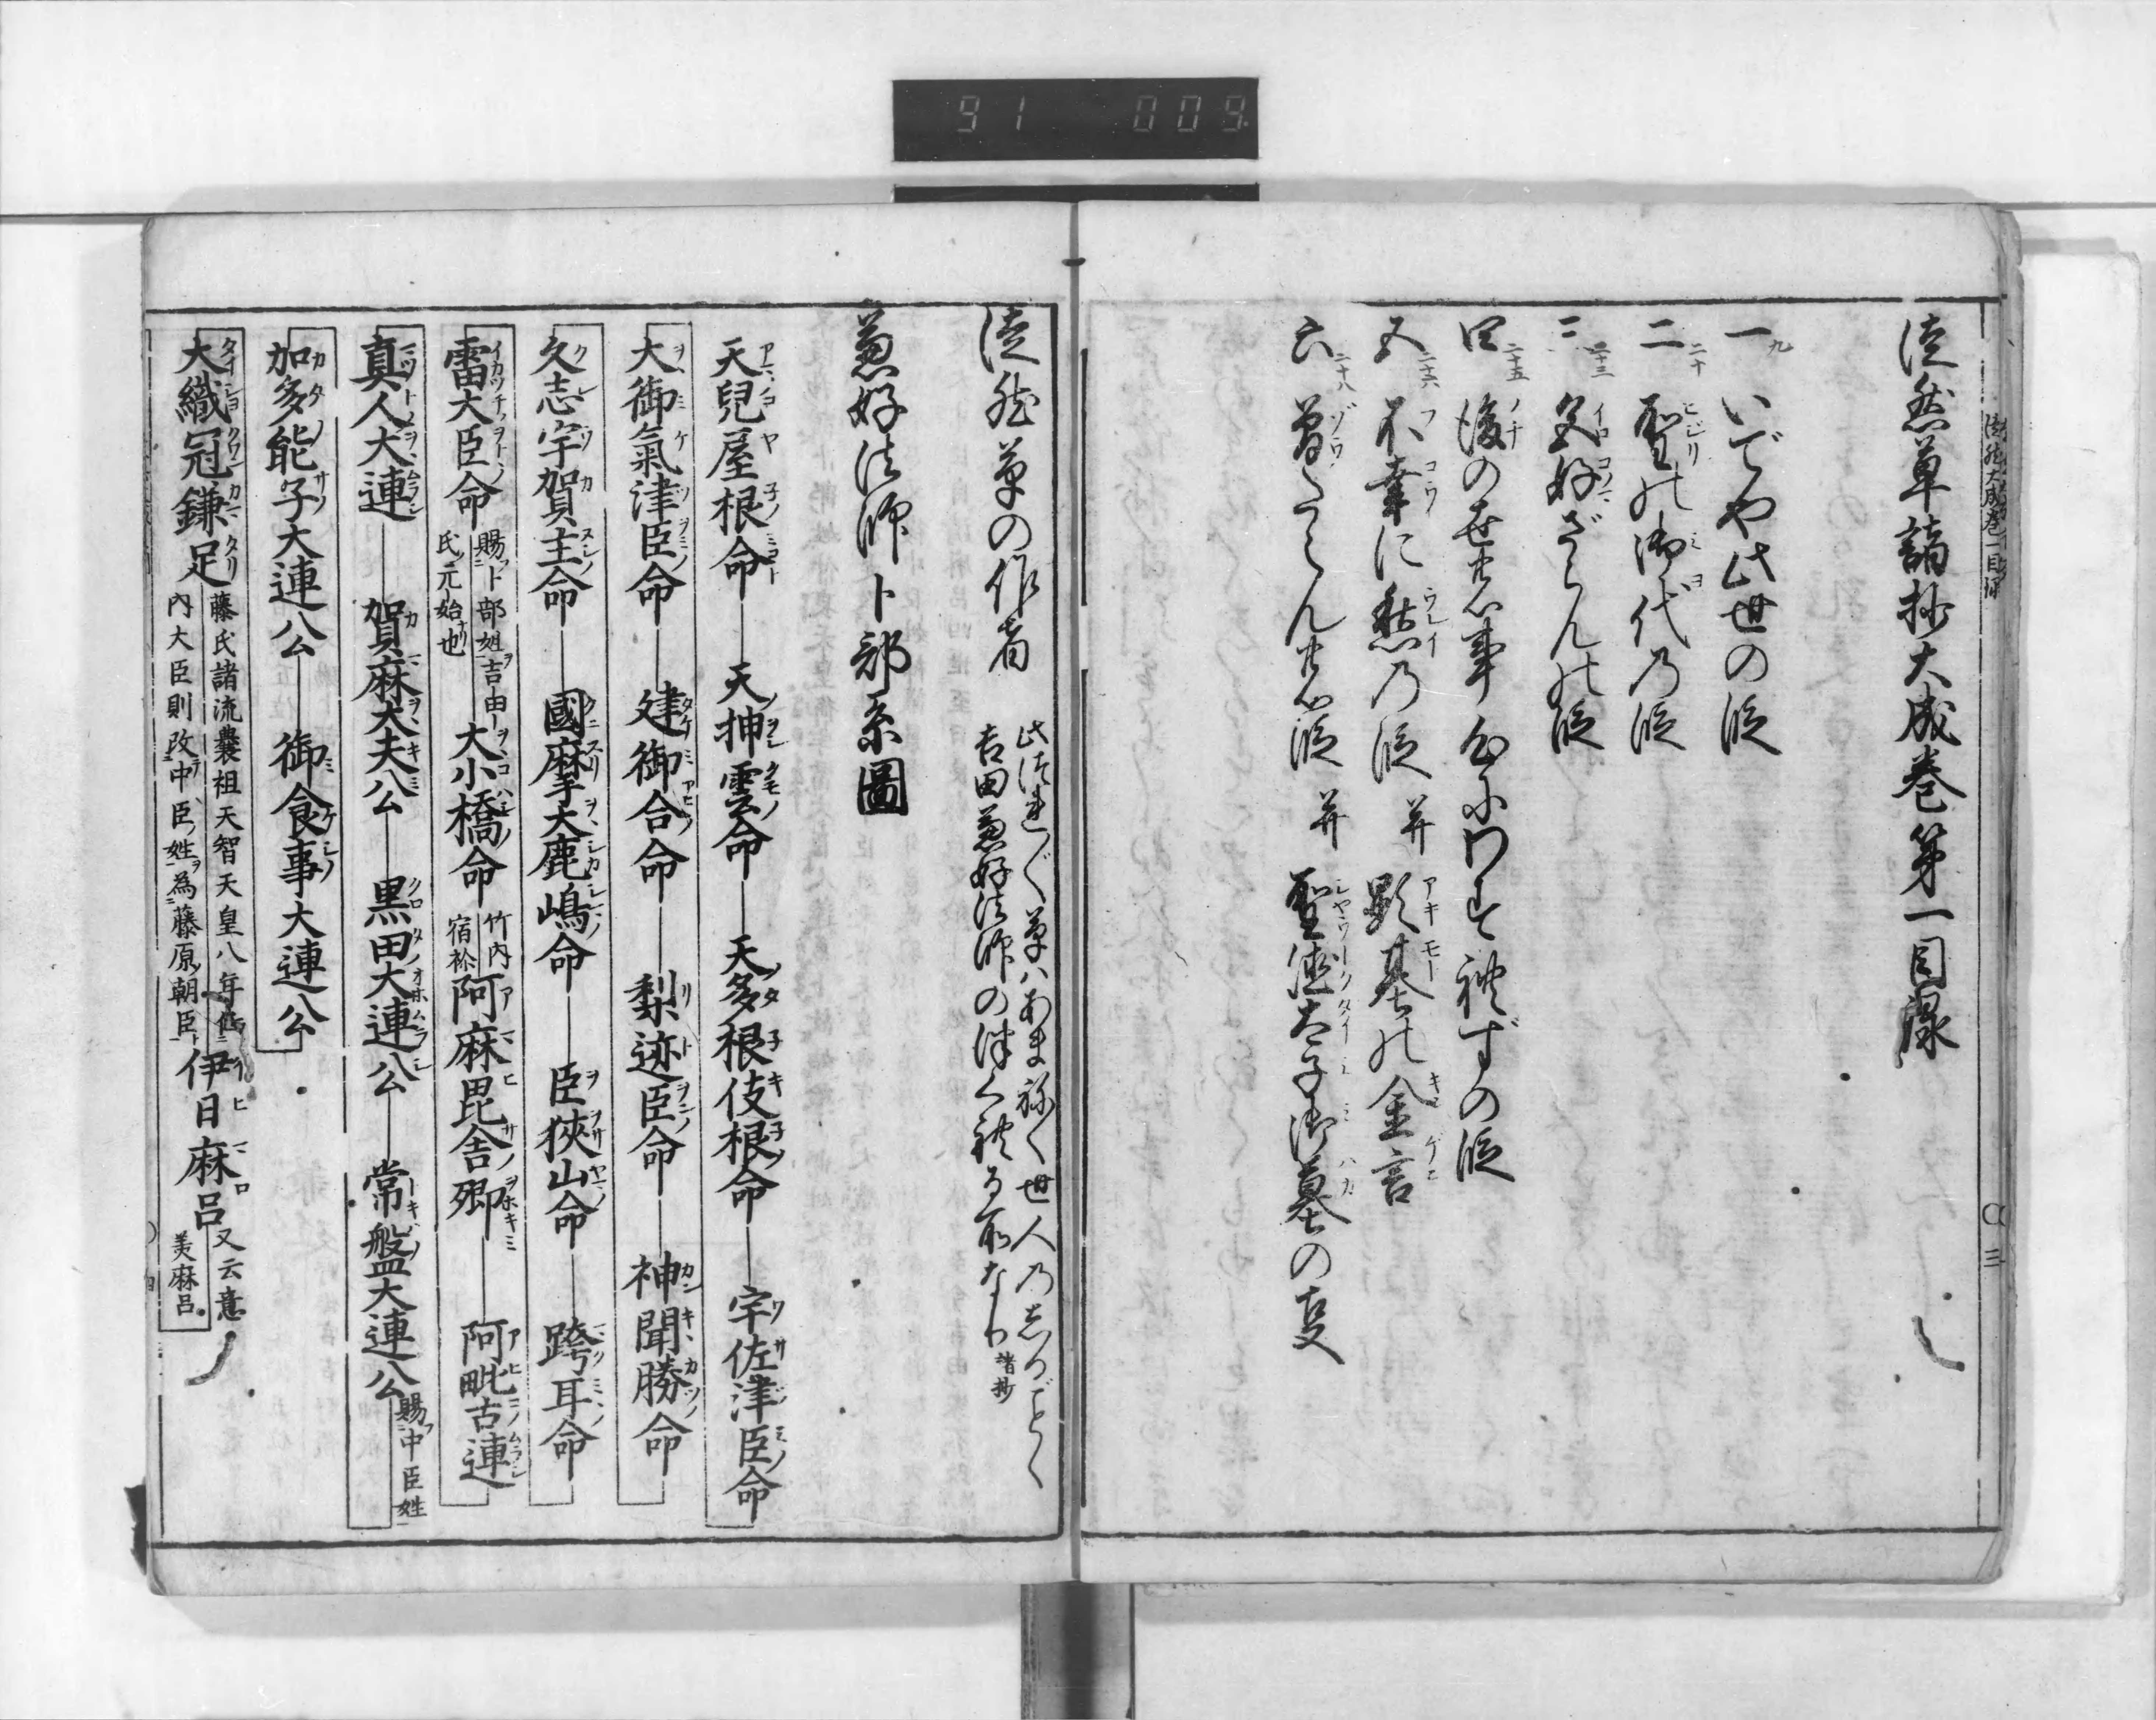 徒然草諸抄大成巻第一目録
一 九 いでや此世の段
二 二十 聖の御代の段
三 二十三 色好ざらんの段
四 二十五 後の世の事心にわすれずの段
五 二十六 不幸に愁の段 并 顕基の金言
六 二十八 前たらんの段 并 聖徳太子御墓の事
徒然草の作者
此つれ〴〵草ハあまねく世人のしるごとく
吉田兼好法師の つくれる所なり 諸抄
兼好法師卜部系圖
天兒屋根命 天押雲命 天多根伎根命 宇佐津臣命
大御氣津臣命 建御合命 梨迹臣命 神聞勝命
久志宇賀主命 國摩大鹿嶋命 臣狹山命 跨耳命
雷大臣命 賜卜部姓吉由 氏元始也 大小橋命 竹内宿祢 阿麻毘舎卿 阿毗古連
真人大連 賀麻大夫公 黒田大連公 常盤大連公 賜中臣姓
加多能子大連公 御食事大連公
大織冠鎌足 藤氏諸流曩祖天智天皇八年任 内大臣則改中臣姓為藤原朝臣 伊日麻呂 又云意 美麻呂
91 009